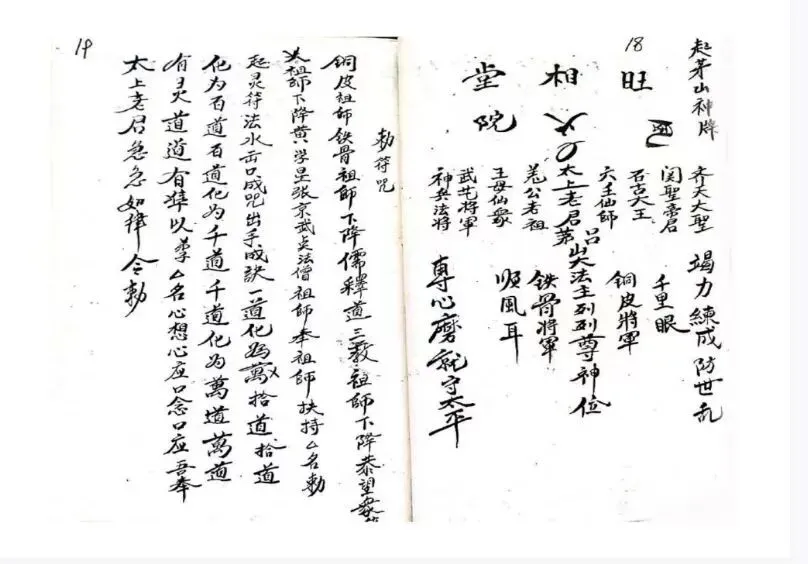 18
起茅山神牌
旺
相
堂
院
竭力練成防世乱
齐天大聖
関聖帝君
千里眼
石古大王
六壬仙師
銅皮將軍
太上老君茅山大法主列列尊神位
吕
公老祖
鉄骨將軍
王母仙衆
順風耳
武屯将軍
神兵法將
専心磨就守太平
19
勅符咒
銅皮祖師鉄骨祖師下降儒釋道三教祖師下降恭望衆
祖師下降黄 張京武 法僧祖師奉祖師扶持厶名勅
起灵符法水 口成咒出手成訣一道化為萬拾道拾道
化为百道百道化为千道千道化为萬道萬道
有灵道道有準以 厶名心想心应口念口应吾奉
太上老君急急如律令勅